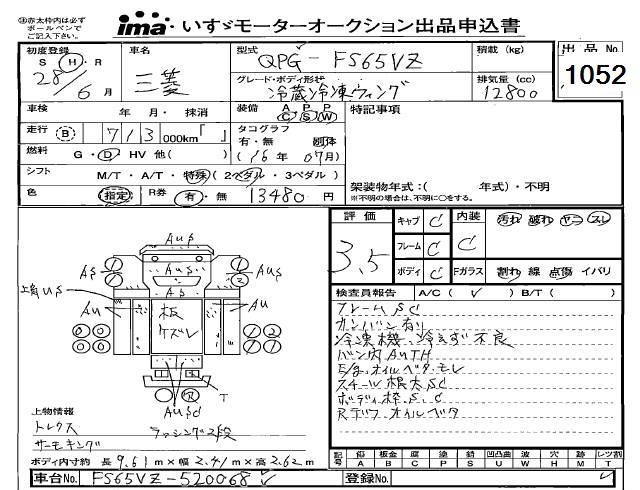 ㊟赤太枠内は必ず
ボールペンで
ご記入下さい。
ima いすゞモーターオークション出品申込書
初度登録 S H・R 28/6月
車名 三菱
型式 QPG-FS65VZ
積載 (kg)
出品No. 1052
グレード・ボディ形状 冷蔵冷凍ウィング
排気量 (cc) 12800
車検 年 月・抹消
装備 A P P C S W
特記事項
走行 B 713 000km「 」
タコグラフ 有・無
(16年07月)
燃料 G・D HV 他( )
シフト M/T・A/T・特殊(2ペダル/3ペダル)
架装物年式:( 年式)・不明
※不明の場合は、不明に○をする。
色 指定 R券 有・無 13480円
評価 3.5
キャブ C
内装 C
汚れ 破れ ヤニ スレ
フレーム C
ボディ C
Fガラス 割れ 線 点傷 イバリ
検査員報告 A/C( ✓ ) B/T( )
フレームSC
カンバン有り
冷凍機、冷えず不良
バン内AUTH
E/g オイルベタ・モレ
スチール根太SC
ボディ枠S.C
Rデフ オイルベタ
AuS
AuS
AS
AuS
上角US
Au
Au
板
ケズレ
T
AuSC
上物情報
トレクス
ラッシング2段
サーモキング
ボディ内寸約 長9.61m×幅2.41m×高2.62m
記号 傷A 板金B 腐C 塗P 錆S 凹凸曲U 波W 穴H 跡M レンズ割T
車台No. FS65VZ-520068 ✓
登録No.